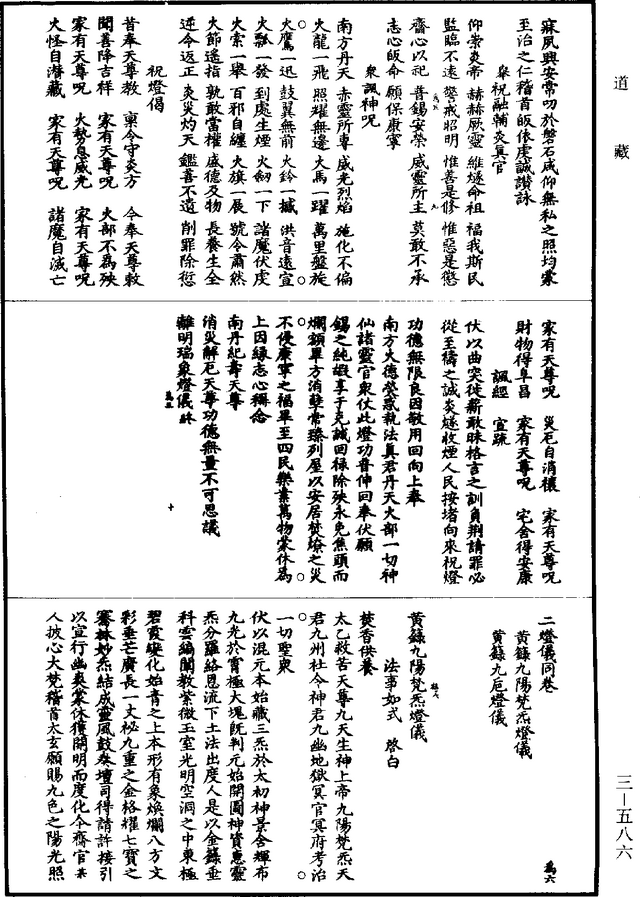 道藏
寐夙興安常叨於磐石咸仰無私之照均蒙
至治之仁稽首皈依虔誠讚詠
皋祝融輔炎真官
仰崇炎帝 赫赫厥靈 維燧命祖 福我斯民
監臨不遠 警戒昭明 惟善是修 惟惡是懲
齋心以祀 普錫安榮 威靈所主 莫敢不承
志心皈命 願保康寧
衆諷神呪
南方丹天 赤靈所專 威光烈焰 施化不偏
火龍一飛 照耀無邊 火馬一躍 萬里盤旋
火鷹一迅 鼓翼無前 火鈴一擲 洪音遠宣
火瓢一發 到處生煙 火劒一下 諸魔伏虔
火索一舉 百邪自纏 火旗一展 號令肅然
火節遥指 孰敢當權 威德及物 長養生全
逆令返正 炎災灼天 鑑善不遺 削罪除愆
祝燈偈
昔奉天尊教 稟令守炎方 今奉天尊敕
聞善降吉祥 家有天尊呪 火部不為殃
家有天尊呪 火勢息威光 家有天尊呪
火怪自潛藏 家有天尊呪 諸魔自滅亡
家有天尊呪 災厄自消禳 家有天尊呪
財物得阜昌 家有天尊呪 宅舍得安康
諷經 宣疏
伏以曲突徙薪敢昧格言之訓負荆請罪必
從至禱之誠炎燧收煙人民按堵向來祝燈
功德無限良因敬用回向上奉
南方火德熒惑執法真君丹天火部一切神
仙諸靈官衆仗此燈功普伸回奉伏願
錫之純嘏享于克誠回祿除殃永免焦頭而
爛額畢方消孽常臻列屋以安居焚燎之災
不侵康寧之福畢至四民樂業萬物蒙休為
上因緣志心稱念
南丹紀壽天尊
消災解厄天尊功德無量不可思議
離明瑞象燈儀終
二燈儀同卷
黃籙九陽梵炁燈儀
黃籙九巵燈儀
為六
黃籙九陽梵炁燈儀
法事如式 啓白
焚香供養
太乙救苦天尊九天生神上帝九陽梵炁天
君九州社令神君九幽地獄冥官冥府考治
一切聖衆
伏以混元本始藏三炁於太初神景舍輝布
九光於霄極大塊既判元始開圖神資惠靈
炁分羅絡恩流下土法出度人是以金籙垂
科雲編闡教紫微玉室光明空洞之中東極
碧霞變化始青之上本形有象煥爛八方文
彩垂芒廣長一丈祕九重之金格耀七寶之
騫林妙炁結成靈風鼓奏壇司得請許接引
以宣行幽爽蒙休獲開明而度化今齋官某
人披心大梵稽首太玄願賜九色之陽光照
三－五八六